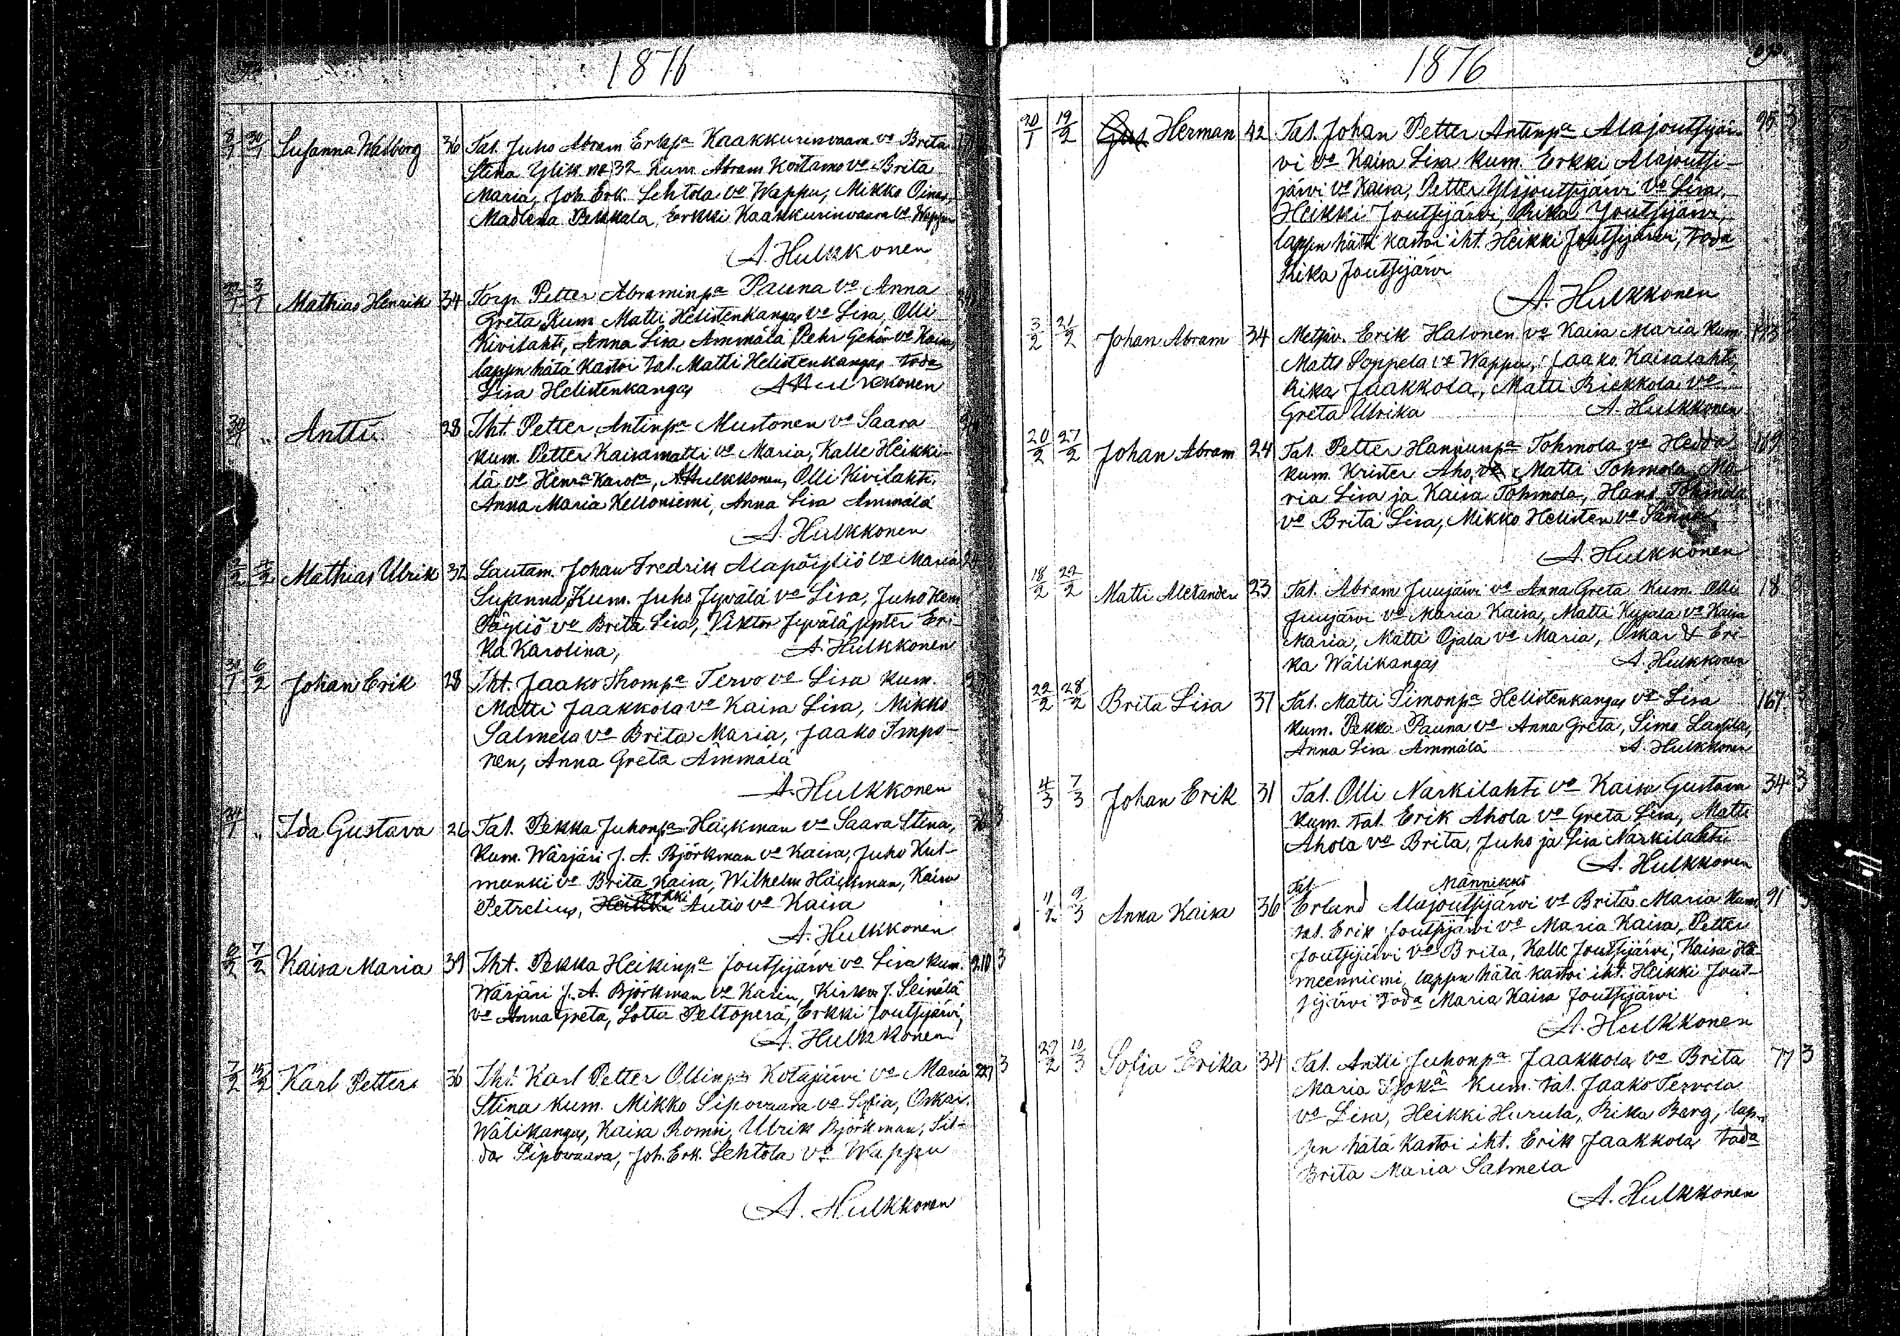 1876
8/1 30/1 Susanna Walborg 36 Tal. Juho Abram Erkinpa Kaakkurinvaara vo Brita
Stina Ylik no 32 Kum. Abram Koitamo vo Brita
Maria, Joh. Erk. Lehtola vo Wappu, Mikko Oina,
Madlena Pekkala, Erkki Kaakkurinvaara vo Wappu
A. Hulkkonen
Mathias Henrik 34 Torp. Petter Abraminpa Pauna vo Anna
Greta, Kum. Matti Helistenkangas vo Lisa, Olli
Kivilahti, Anna Lisa Ämmälä, Pehr Gehör vo Kaisa,
lapsen hätä kastoi tal. Matti Helistenkangas toda
Lisa Helistenkangas A. Hulkkonen
30/1 " Antti 28 Iht. Petter Antinpa Mustonen vo Saara
kum. Petter Kaisamatti vo Maria, Kalle Heikki-
lä vo Henra Karola, A. Hulkkonen, Olli Kivilahti,
Anna Maria Kelloniemi, Anna Lisa Ämmälä
A. Hulkkonen
Mathias Ulrik 32 Lautam. Johan Fredrik Alapöyliö vo Maria
Susanna Kum. Juho Jyvälä vo Lisa, Juho Kem
Pöyliö vo Brita Lisa, Viktor Jyvälä, Eri-
ka Karolina, A. Hulkkonen
31/1 6/2 Johan Erik 28 Iht. Jaako Thompa Tervo vo Lisa kum.
Matti Jaakkola vo Kaisa Lisa, Mikko
Salmela vo Brita Maria, Jaako Impo-
nen, Anna Greta Ämmälä
A. Hulkkonen
24/1 " Ida Gustava 26 Tal. Pekka Juhonpa Häckman vo Saara Stina, 3
kum. Wärjäri J. A. Björkman vo Kaisa, Juho Kul-
manki vo Brita Kaisa, Wilhelm Häckman, Kaisa
Petrelius, Erkki Autio vo Kaisa
A. Hulkkonen
6/2 7/2 Kaisa Maria 39 Iht. Pekka Heikinpa Joutsijärvi vo Lisa kum. 210 3
Wärjäri J. A. Björkman vo Karin, J. Leinälä
vo Anna Greta, Lotta Peltoperä, Erkki Joutsijärvi,
A. Hulkkonen
7/2 15/2 Karl Petter 36 Iht. Karl Petter Ollinpa Kotajärvi vo Maria 227 3
Stina kum. Mikko Sipovaara vo Sofia, Oskar
Wälikangas, Kaisa Romsi, Ulrik Björkman, Sil-
da Sipovaara, Joh. Erk. Lehtola vo Wappu
A. Hulkkonen
1876
20/1 19/2 Herman 42 Tal. Johan Petter Antinpa Alajoutsijär- 95 3
vi vo Kaisa Lisa kum. Erkki Alajoutsi-
järvi vo Kaisa, Petter Ylijoutsijärvi vo Lisa,
Heikki Joutsijärvi, Rika Joutsijärvi,
lapsen hätä kastoi iht. Heikki Joutsijärvi, toda
Rika Joutsijärvi
A. Hulkkonen
3/2 21/2 Johan Abram 34 Metsäv. Erik Halonen vo Kaisa Maria kum.
Matts Poppela vo Wappu, Jaako Kaisalahti,
Rika Jaakkola, Matti Riekkola vo
Greta Ulrika A. Hulkkonen
20/2 27/2 Johan Abram 24 Tal. Petter Hannunpa Tohmola vo Hedda 119
kum. Krister Aho, Matti Tohmola, Ma-
ria Lisa ja Kaisa Tohmola, Hans Tohmola
vo Brita Lisa, Mikko Helisten vo Sanna
A. Hulkkonen
18/2 22/2 Matti Alexander 23 Tal. Abram Juujärvi vo Anna Greta kum. Olli 18 3
Juujärvi vo Maria Kaisa, Matti Kujala vo Kaisa
Maria, Matti Ojala vo Maria, Oskar & Eri-
ka Wälikangas A. Hulkkonen
22/2 28/2 Brita Lisa 37 Tal. Matti Simonpa Helistenkangas vo Lisa 167
kum. Pekka Pauna vo Anna Greta, Simo Laspla,
Anna Lisa Ämmälä A. Hulkkonen
4/3 7/3 Johan Erik 31 Tal. Olli Narkilahti vo Kaisa Gustava 34 3
kum. tal. Erik Ahola vo Greta Lisa, Matti
Ahola vo Brita, Juho ja Lisa Narkilahti
A. Hulkkonen
Tal. Männikkö
9/3 Anna Kaisa 36 Erland Alajoutsijärvi vo Brita Maria kum. 91 3
tal. Erik Joutsijärvi vo Maria Kaisa, Petter
Joutsijärvi vo Brita, Kalle Joutsijärvi, Kaisa Hä-
meenniemi, lapsen hätä kastoi iht. Heikki Jout-
sijärvi toda Maria Kaisa Joutsijärvi
A. Hulkkonen
29/2 10/3 Sofia Erika 34 Tal. Antti Juhonpa Jaakkola vo Brita 77 3
Maria kum. tal. Jaako Tervola
vo Lisa, Heikki Hurula, Rika Barg, lap-
sen hätä kastoi iht. Erik Jaakkola toda
Brita Maria Salmela
A. Hulkkonen